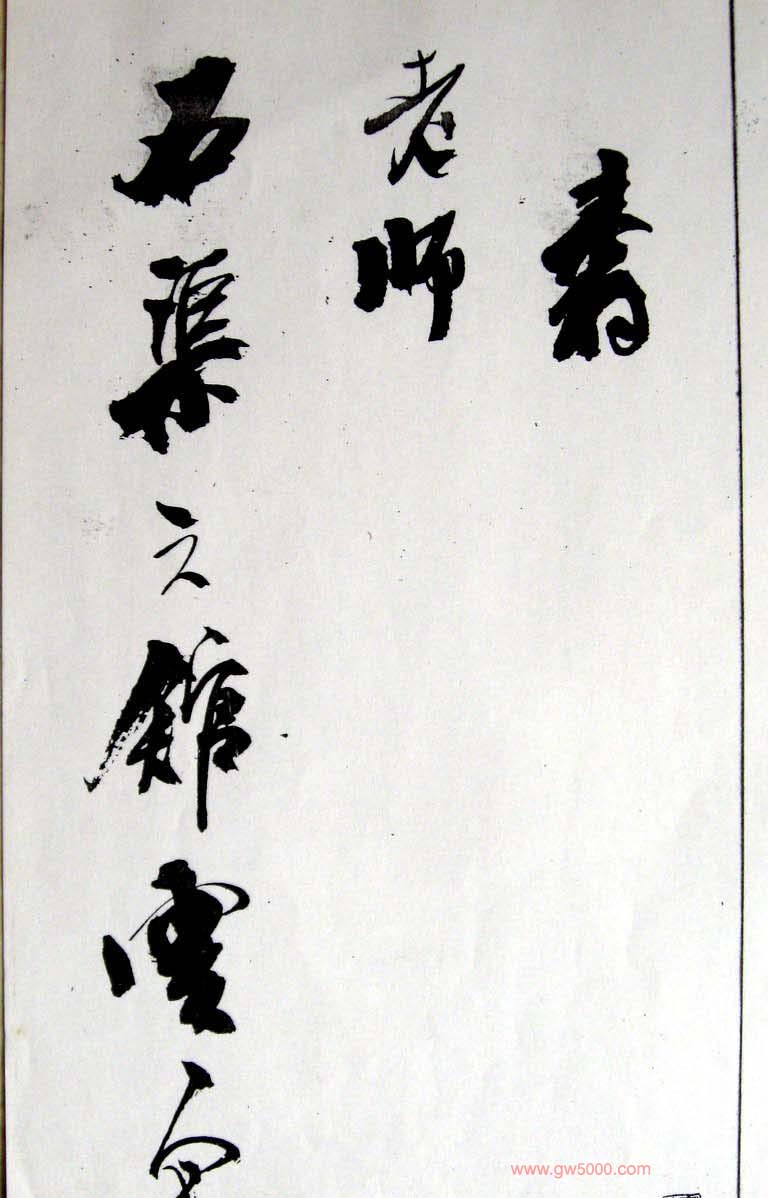 老師
石渠之館雲
www.gw5000.com